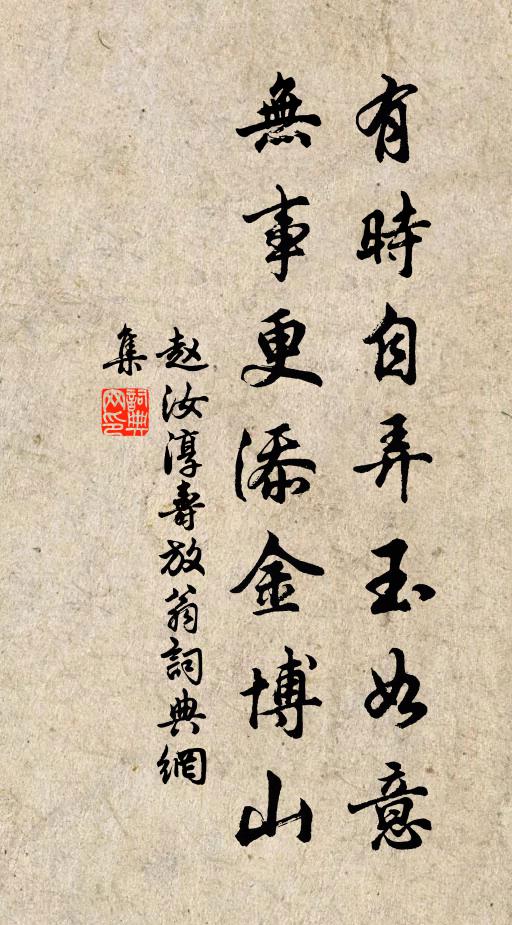 有時自弄玉如意
無事更添金博山
赵汝淳壽放翁詞典網
集
詞典
网印